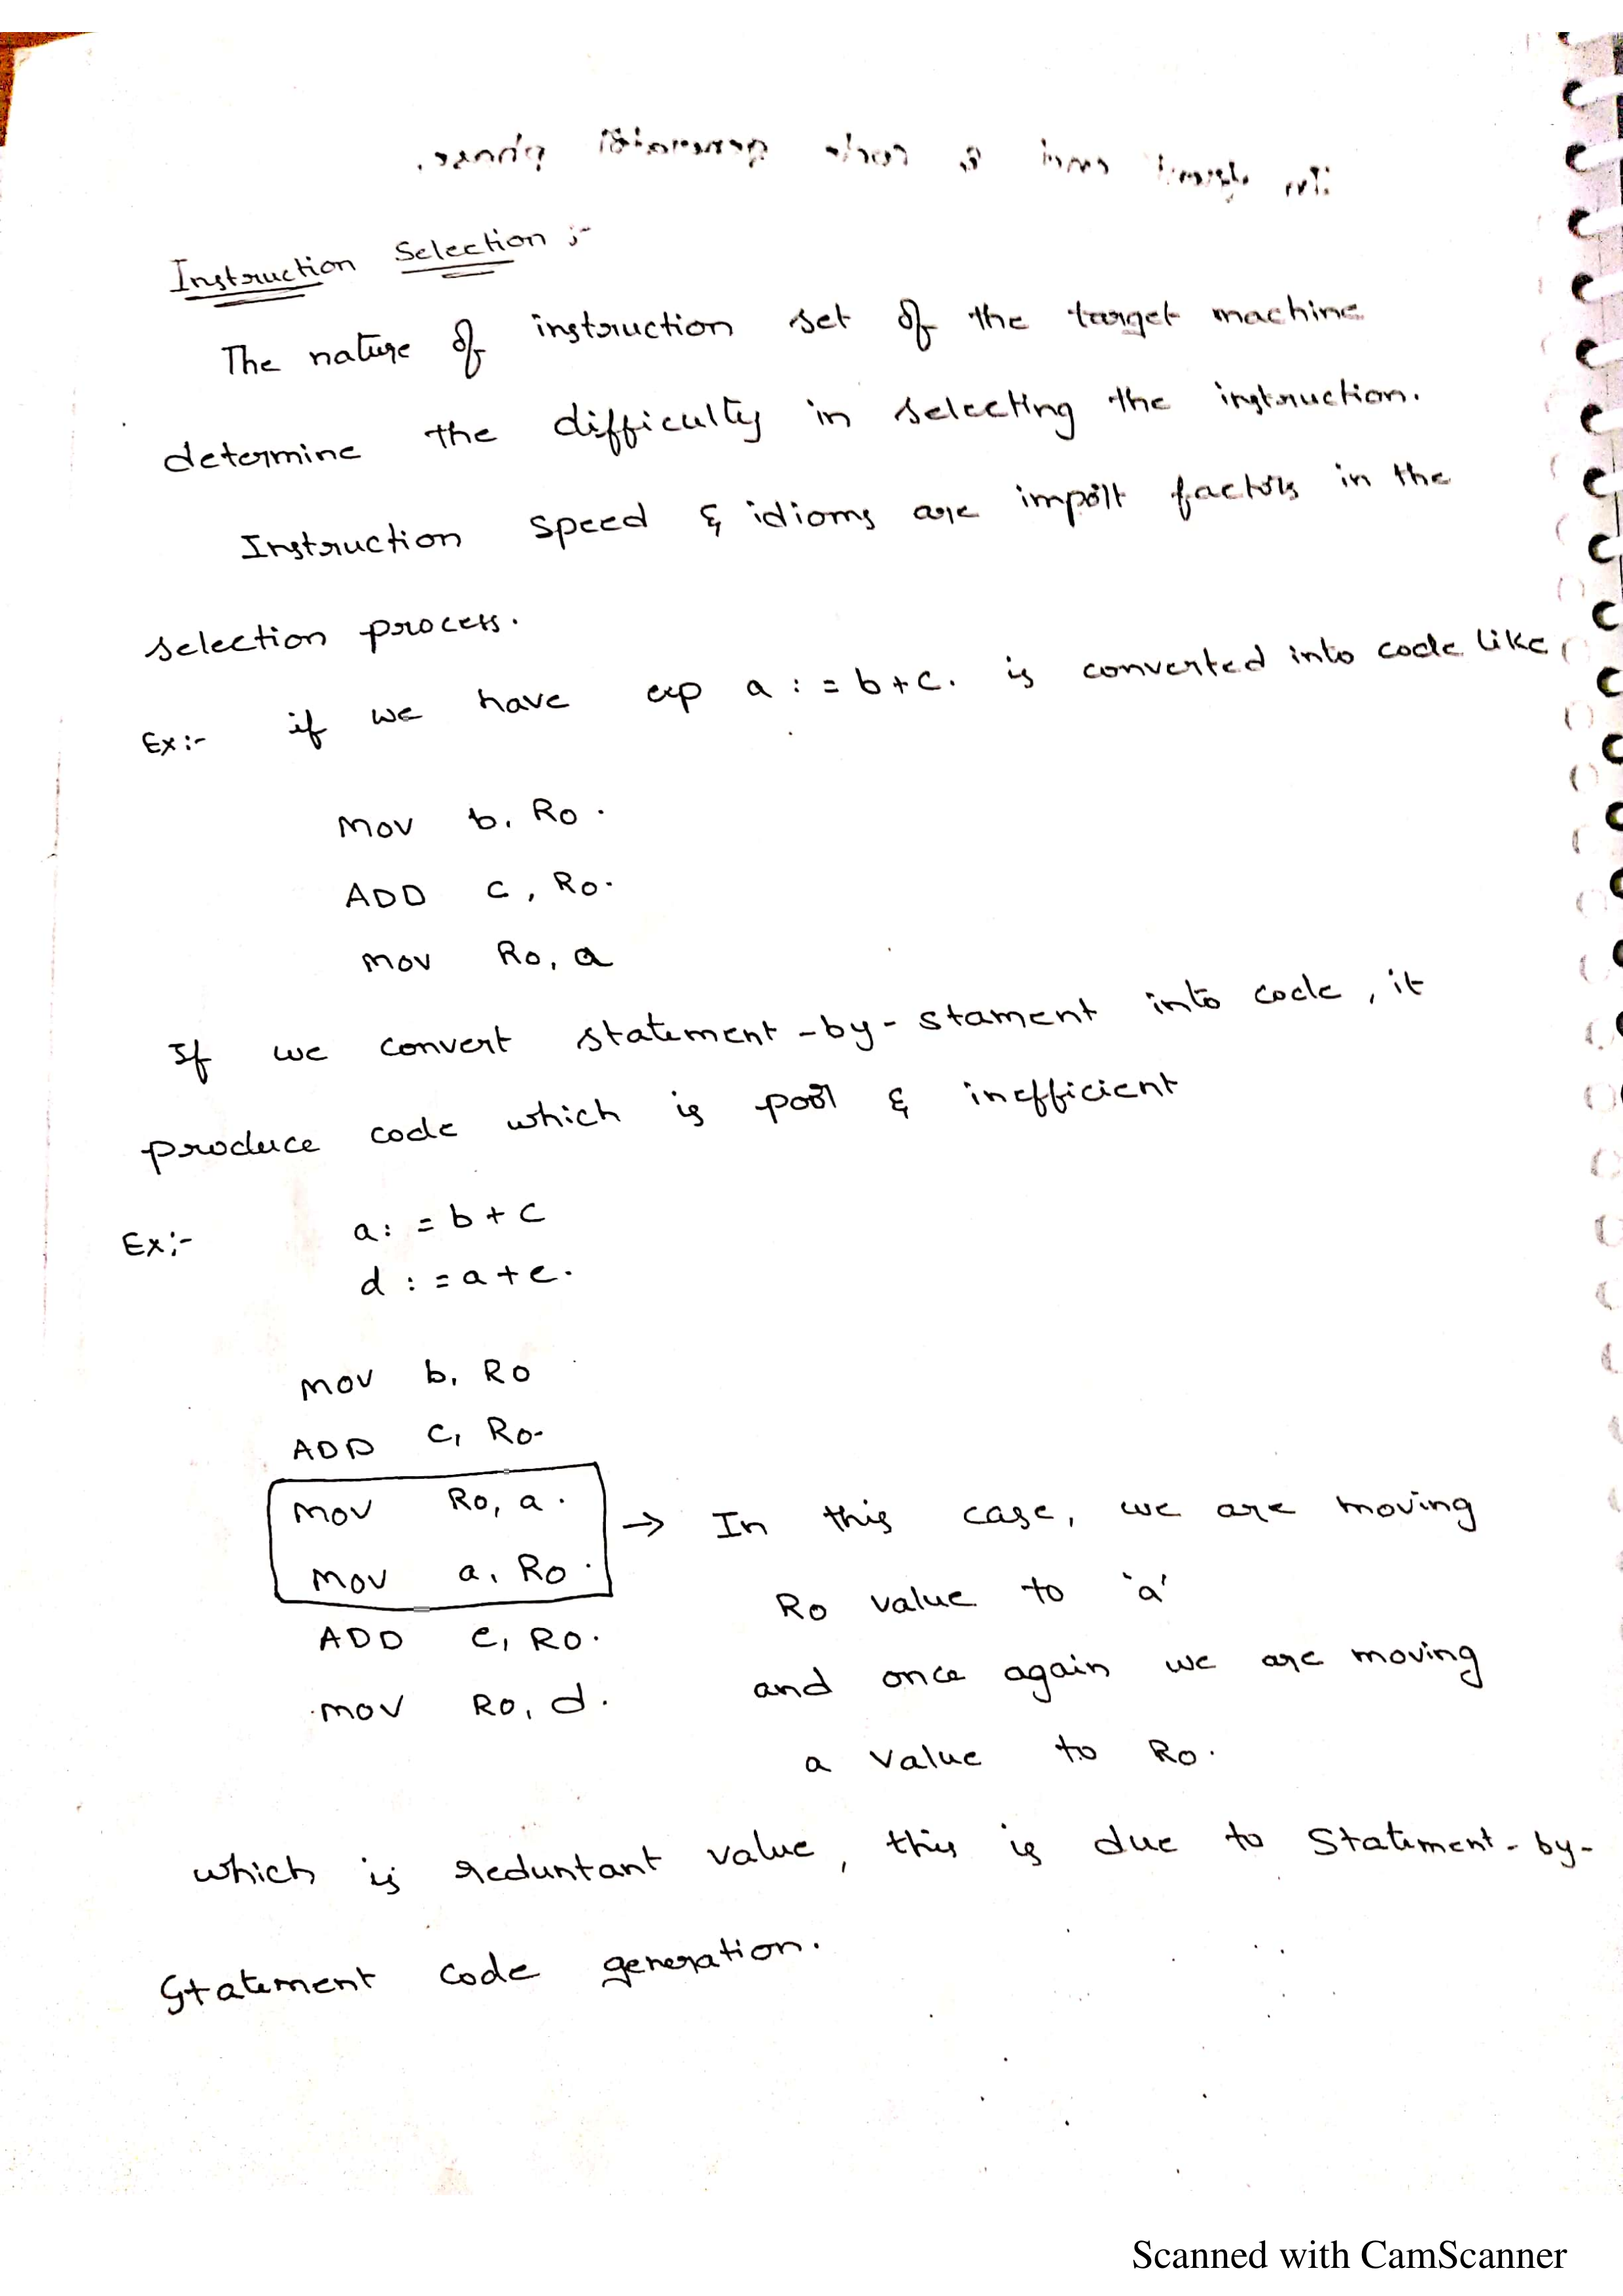 Instruction Selection :-
The nature of instruction set of the target machine
determine the difficulty in selecting the instruction.
Instruction speed & idioms are import factors in the
selection process.
Ex:- if we have exp a := b+c. is converted into code like,
Mov b, Ro.
ADD c, Ro.
Mov Ro, a
If we convert statement-by-stament into code, it
produce code which is poor & inefficient
Ex:- a := b+c
d := a+e.
Mov b, Ro
ADD c, Ro.
Mov Ro, a. → In this case, we are moving
Mov a, Ro. Ro value to 'a'
ADD e, Ro. and once again we are moving
Mov Ro, d. a value to Ro.
which is reduntant value, this is due to Statement-by-
Statement code generation.
Scanned with CamScanner